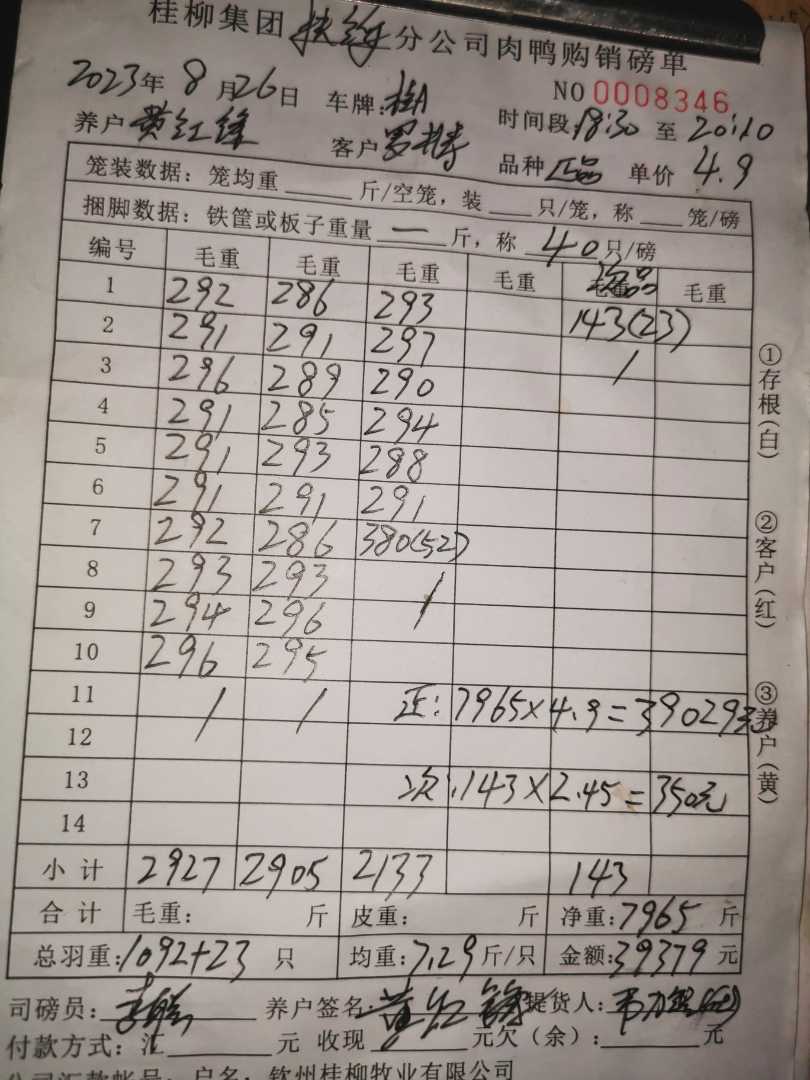 桂柳集团扶绥分公司肉鸭购销磅单
2023年8月26日 车牌:桂A NO 0008346
养户 黄红锋 客户 罗 时间段 18:30 至 20:10
品种 正品 单价 4.9
笼装数据: 笼均重 斤/空笼, 装 只/笼, 称 笼/磅
捆脚数据: 铁筐或板子重量 一 斤, 称 40 只/磅
编号 毛重 毛重 毛重 毛重 次品 毛重
1 292 286 293 143(23)
2 291 291 297 /
3 296 289 290
4 291 285 294
5 291 293 288
6 291 291 291
7 292 286 380(52)
8 293 293 /
9 294 296
10 296 295
11 / / 正: 7965×4.9=39029元
12
13 次:143×2.45=350元
14
小计 2927 2905 2133 143
合计 毛重: 斤 皮重: 斤 净重:7965 斤
总羽重:1092+23 只 均重:7.29 斤/只 金额:39379 元
司磅员: 李 养户签名: 黄红锋 提货人:
付款方式: 汇 元 收现 元欠(余): 元
公司汇款帐号: 户名: 钦州桂柳牧业有限公司
①存根(白)
②客户(红)
③养户(黄)